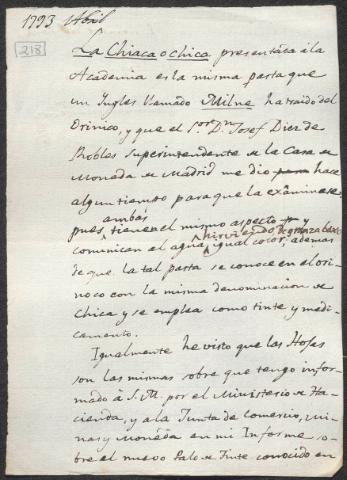 1793 Abril
218
La Chiaca o chica presentada á la
Academia es la misma pasta que
un Ingles llamado Milne ha traido del
Orinico, y que el S.or D.n Josef Diez de
Robles Superintendente de la Casa de
Moneda de Madrid me dio hace
algun tiempo para que la exâminase
ambas
pues tienen el mismo aspecto y
hirviendo
comunican el agua igual color, ademas
de que la tal pasta se conoce en el ori-
noco con la misma denominacion de
Chica y se emplea como tinte y medi-
camento.
Igualmente he visto que las Hojas
son las mismas sobre que tengo infor-
mado à S. M. por el Ministerio de Ha-
cienda, y a la Junta de Comercio, Mi-
nas y Monéda en mi Informe so-
bre el nuevo Palo de Tinte conocido en